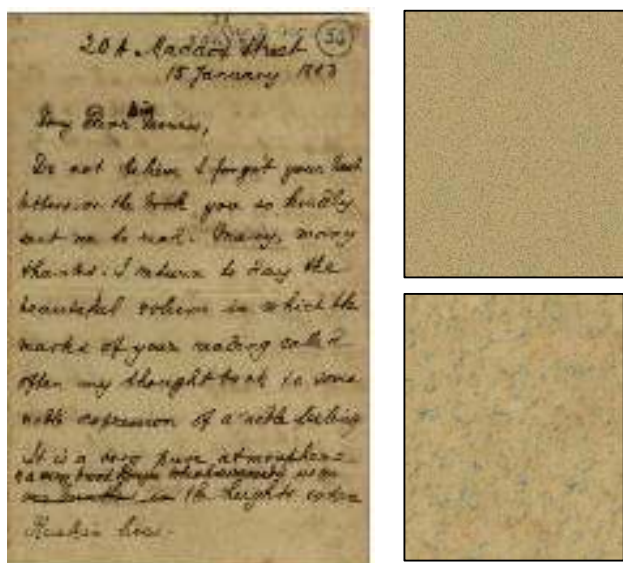 20A Maddox Street 54
15 January 1883
My Dear Sir
Do not believe I forgot your
the book you so kindly
sent me to read. Many, many
thanks. I return to day the
beautiful volume in which the
marks of your reading called
often my thought back to some
noble expression of a noble feeling
It is a very pure atmosphere
in the heights where
Ruskin lives.